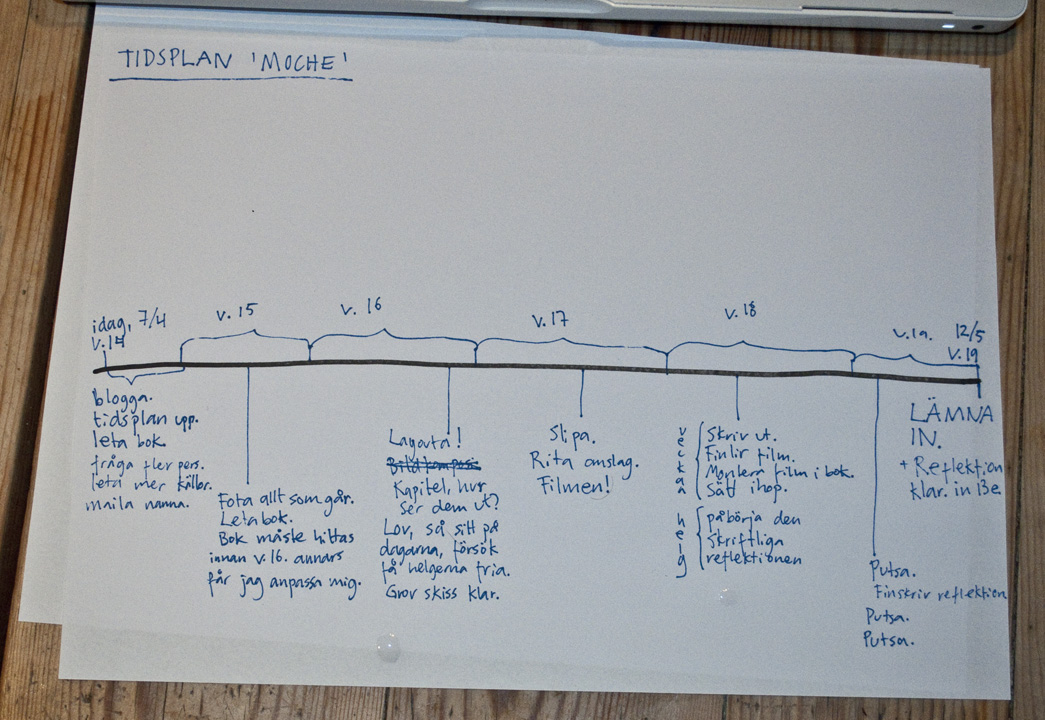 TIDSPLAN 'MOCHE'
idag, 7/4
v.14
v.15
v. 16
v.17
v.18
v.19.
12/5
v.19
blogga.
tidsplan upp.
leta bok.
fråga fler pers.
leta mer källor.
maila nanna.
Fota allt som går.
Leta bok.
Bok måste hittas
innan v.16. annars
får jag anpassa mig.
Layouta!
Bildkomposi
Kapitel, hur
ser dem ut?
Lov, så sitt på
dagarna, försök
få helgerna fria.
Grov skiss klar.
Slipa.
Rita omslag.
Filmen!
veckan
Skriv ut.
Finlir film.
Montera film i bok.
Sätt ihop.
helg
påbörja den
skriftliga
reflektionen
Putsa.
Finskriv reflektion
Putsa.
Putsa.
LÄMNA
IN.
+ Reflektion
klar. in 13e